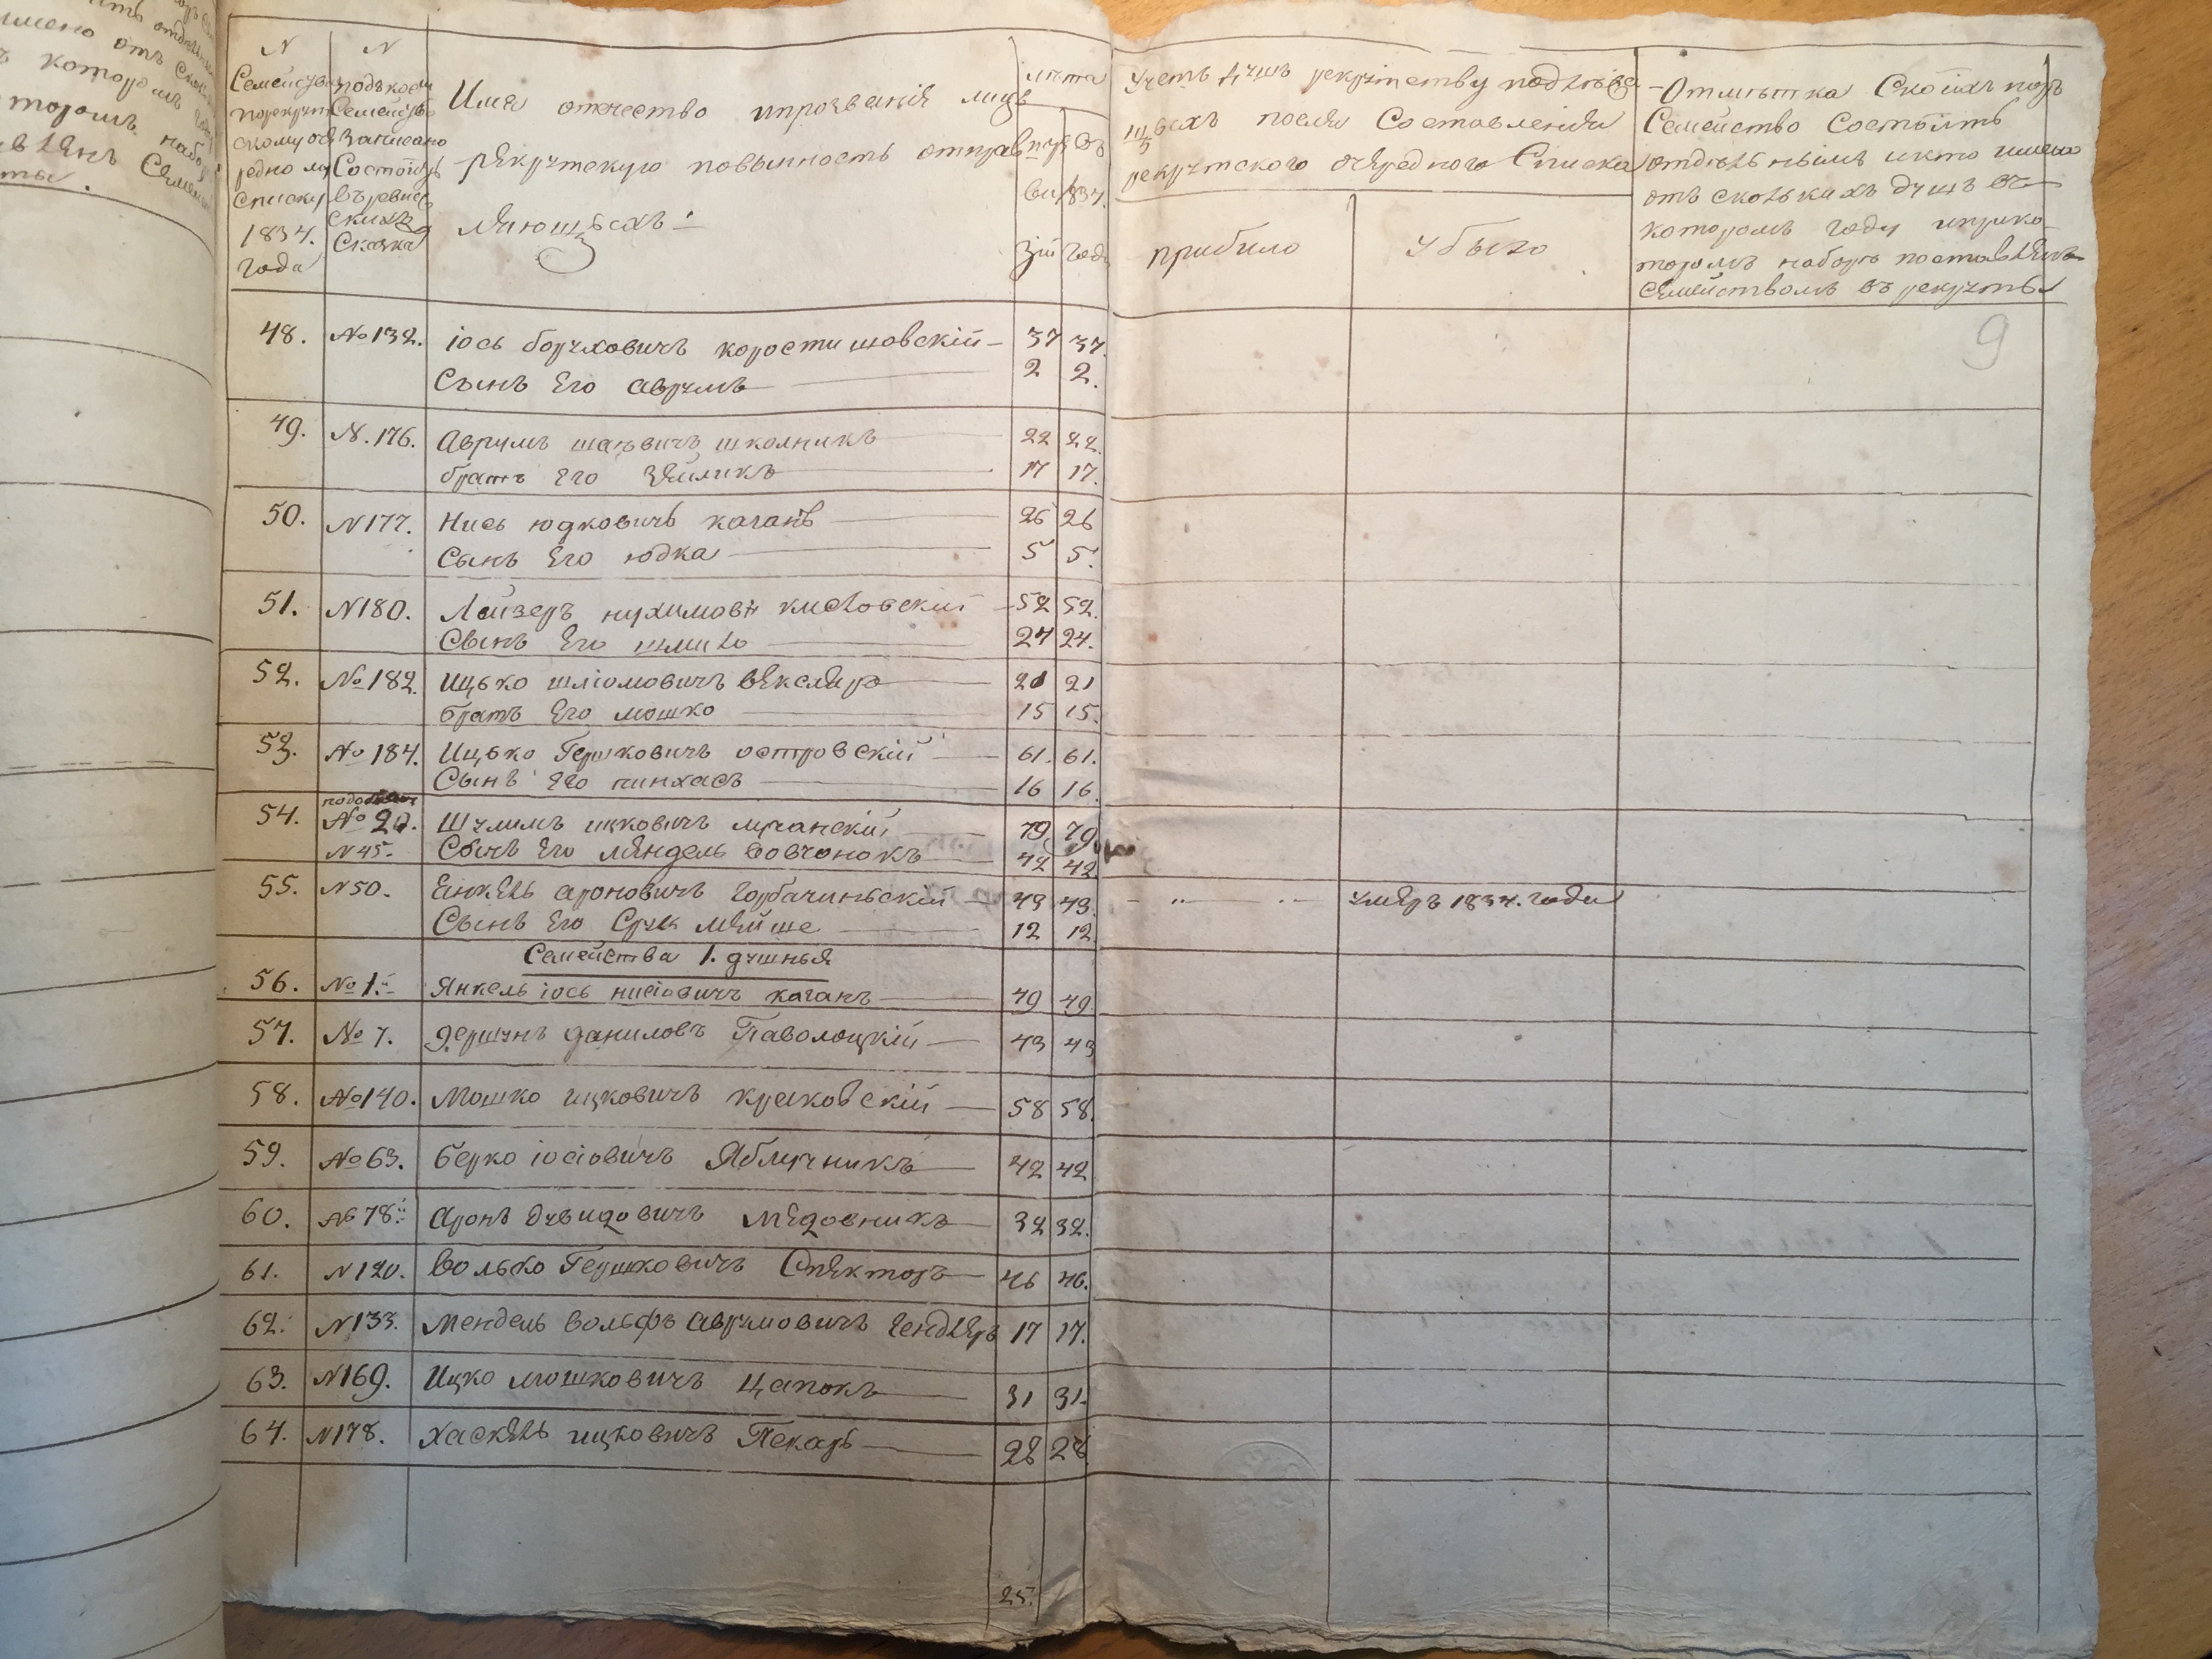 N
Семейства
по рекрут
скому оче
редному
списку
1834.
года
N
подъ коим
Семейство
Записано
Состоитъ
въ ревис
скихъ
Сказка
Имя отчество ипрозвания лицъ
рекрутскую повынность отправ
ляющихъ:
лета
по ре
ви
зіи
въ
1834.
году
Учетъ душъ рекрутству подлежа
щихъ посля Составления
рекрутского очередного Списка
прибило
убыло
Отмътка Скоихъ поръ
Семейство Состоитъ
отдельнымъ икто имено
отъ сколькихъ душъ въ
которомъ году иприко
торомъ наборъ поставленъ
Семействомъ въ рекруты
9
48. №132. іось боруховичъ коростишовскій 37 37.
Сынъ Его аврумъ 2 2.
49. N.176. Аврумъ шаевичъ школникъ 22 22.
братъ Его Зейликъ 17 17.
50. N177. Нись юдковичъ каганъ 26 26
Сынъ Его юдка 5 5.
51. N180. Лайзеръ нухимовъ кисловский 52 52.
Сынъ Его шмило 24 24.
52. №182. Ицько шліомовичъ векслеръ 21 21
братъ Его мошко 15 15.
53. №184. Ицько Гершковичъ островскій 61. 61.
Сынъ Его пинхасъ 16 16.
54. №20. Шулимъ ицковичъ лучанский 79 79.
N45. Сынъ Его Мендель вовчонокъ 42 42.
55. N50. Енкель ароновичъ горбачиньскій 43 43. умеръ 1834. года
Сынъ Его Сруль мейше 12 12.
Семейства 1. душныя
56. №1. Янкель іось нисіовичъ каганъ 49 49.
57. №7. Гершунъ даниловъ Паволоцкій 43 43
58. №140. Мошко ицковичъ краковскій 58 58.
59. №63. берко іосіовичъ Яблучникъ 42 42
60. №78. Аронъ давидовичъ медовникъ 32 32.
61. N120. волько Гершковичъ Спекторъ 46 46.
62. N133. Мендель вольфъ аврумовичъ гендлеръ 17 17.
63. N169. Ицко мошковичъ цапокъ 31 31.
64. N178. хаскель ицковичъ Пекаръ 28 28
25.